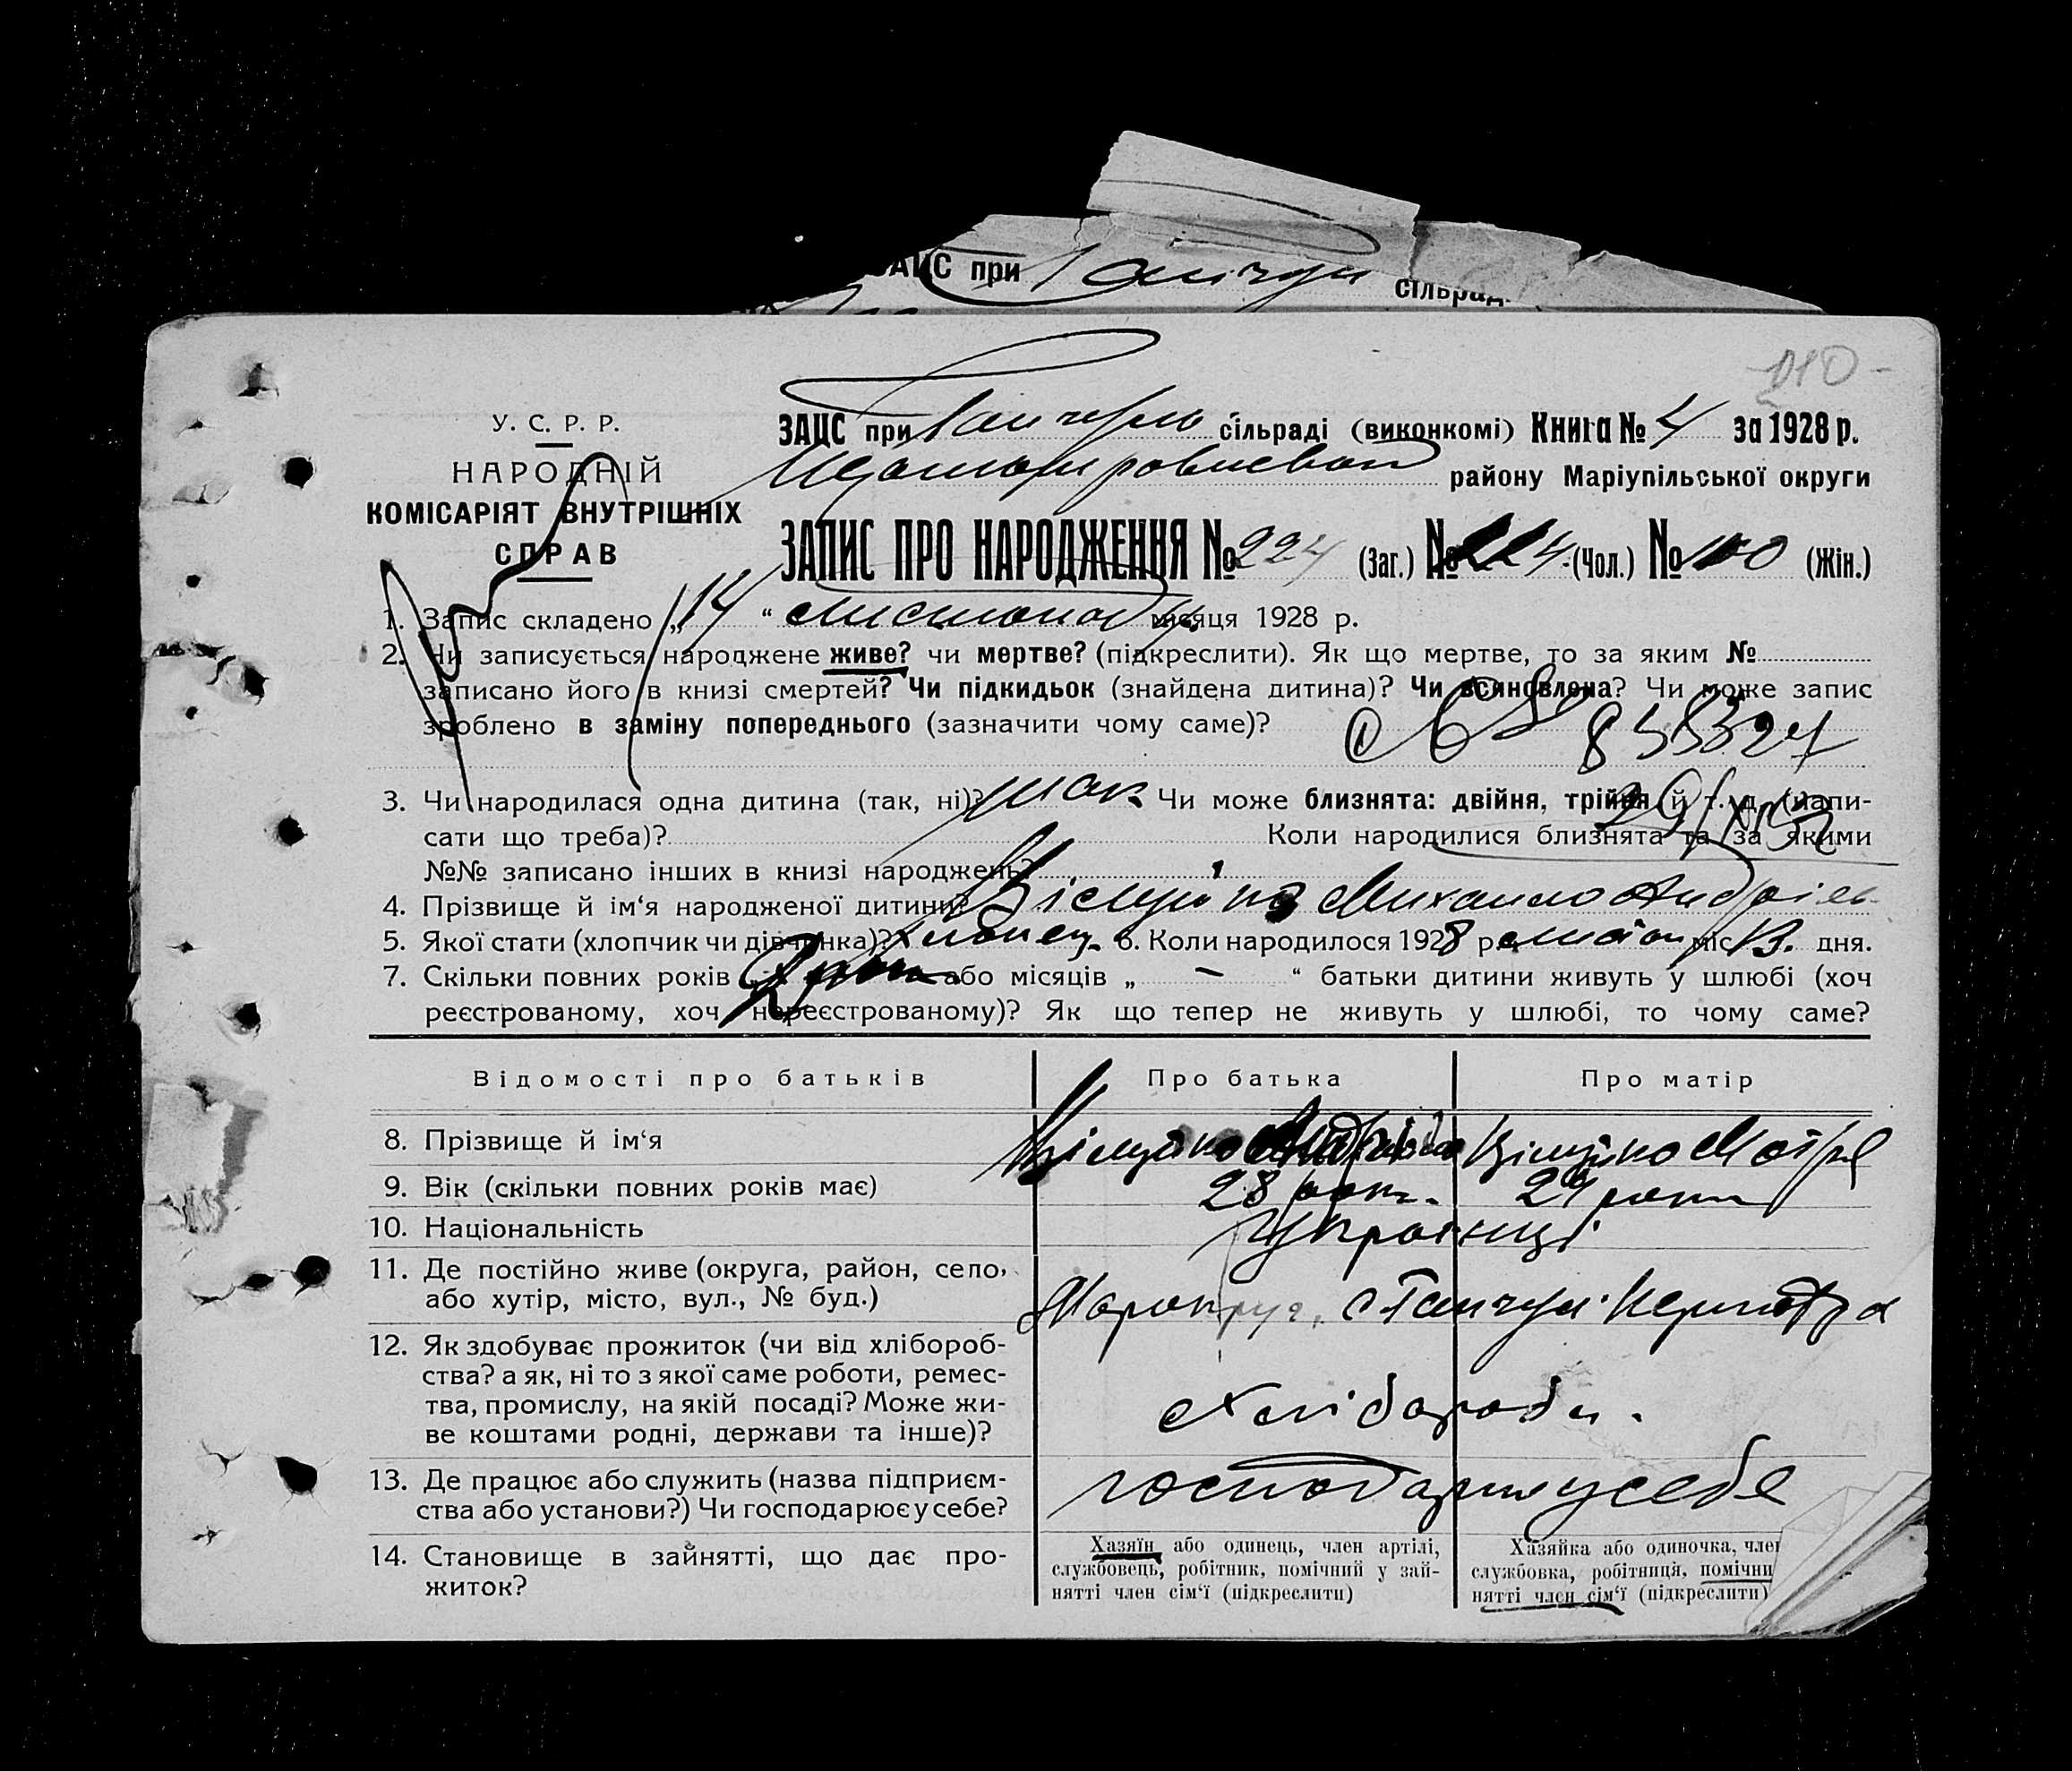 ЗАЦС при Гайчул сільрад
010-
У. С. Р. Р.
НАРОДНІЙ
КОМІСАРІЯТ ВНУТРІШНІХ
СПРАВ
ЗАЦС при сільраді (виконкомі) Книга № 4 за 1928 р.
району Маріупільської округи
ЗАПИС ПРО НАРОДЖЕННЯ № 224 (Заг.) № (Чол.) № (Жін.)
1. Запис складено „14“ листопаду місяця 1928 р.
2. Чи записується народжене живе? чи мертве? (підкреслити). Як що мертве, то за яким №
записано його в книзі смертей? Чи підкидьок (знайдена дитина)? Чи всиновлена? Чи може запис
зроблено в заміну попереднього (зазначити чому саме)?
3. Чи народилася одна дитина (так, ні)? так Чи може близнята: двійня, трійня й т. д. (напи-
сати що треба)? Коли народилися близнята та за якими
№№ записано інших в книзі народжень?
4. Прізвище й ім‘я народженої дитини? Михайло Андрієв
5. Якої стати (хлопчик чи дівчинка)? Хлопец 6. Коли народилося 1928 р. листоп міс 13. дня.
7. Скільки повних років „ або місяців „ — “ батьки дитини живуть у шлюбі (хоч
реєстрованому, хоч нереєстрованому)? Як що тепер не живуть у шлюбі, то чому саме?
Відомості про батьків Про батька Про матір
8. Прізвище й ім‘я
9. Вік (скільки повних років має) 28 рок. 24 роки
10. Національність Українці
11. Де постійно живе (округа, район, село,
або хутір, місто, вул., № буд.) Маропкруг, с Гайчул
12. Як здобуває прожиток (чи від хлібороб-
ства? а як, ні то з якої саме роботи, ремес-
тва, промислу, на якій посаді? Може жи-
ве коштами родні, держави та інше)? Хлібороби.
13. Де працює або служить (назва підприєм-
ства або установи?) Чи господарює у себе? господарюя у себе
14. Становище в зайнятті, що дає про-
житок?
Хазяїн або одинець, член артілі,
службовець, робітник, помічний у зай-
нятті член сім‘ї (підкреслити)
Хазяйка або одиночка, член
службовка, робітниця, помічни
нятті член сім‘ї (підкреслити)